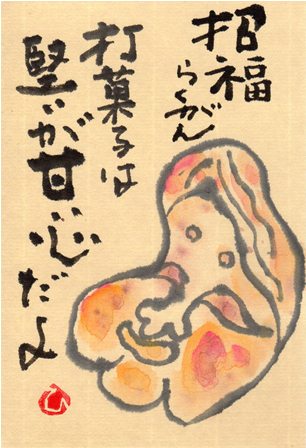 招福
らくがん
打菓子は
堅いが甘心だよ